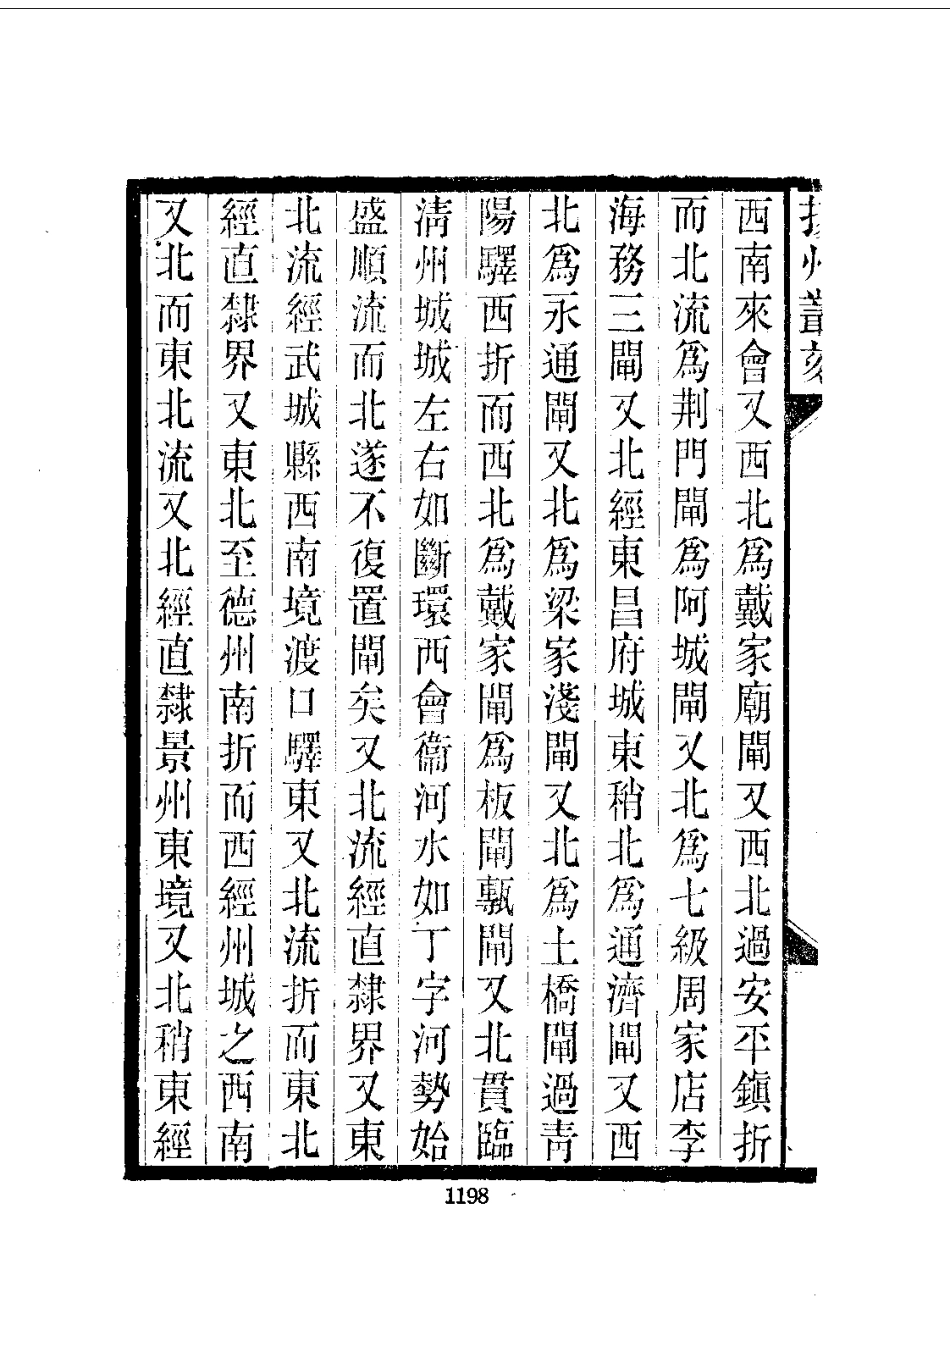 揚州叢刻
西南來會又西北爲戴家廟閘又西北過安平鎮折
而北流爲荆門閘爲阿城閘又北爲七級周家店李
海務三閘又北經東昌府城東稍北爲通濟閘又西
北爲永通閘又北爲梁家淺閘又北爲土橋閘過青
陽驛西折而西北爲戴家閘爲板閘甎閘又北貫臨
清州城城左右如斷環西會衞河水如丁字河勢始
盛順流而北遂不復置閘矣又北流經直隸界又東
北流經武城縣西南境渡口驛東又北流折而東北
經直隸界又東北至德州南折而西經州城之西南
又北而東北流又北經直隸景州東境又北稍東經
1198